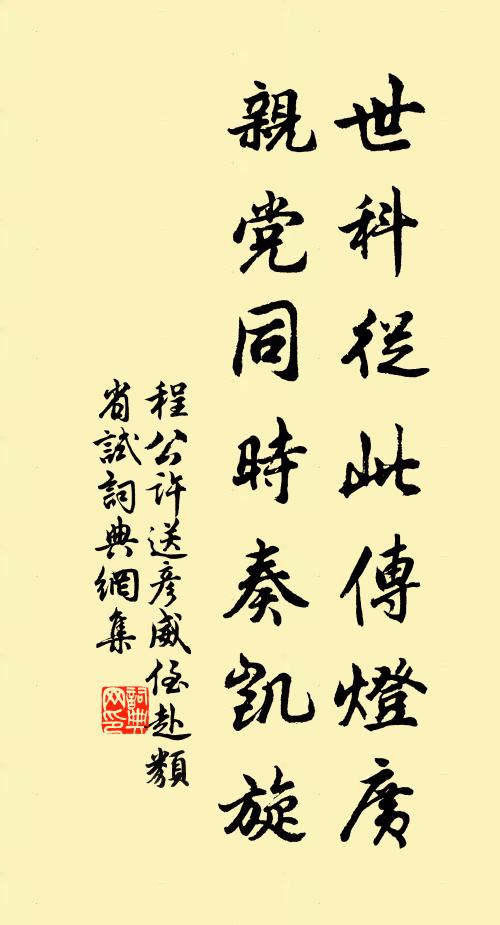 世科從此傳燈廣
親党同時奏凱旋
程公許送彥威侄赴類
省試詞典網集
詞典网印